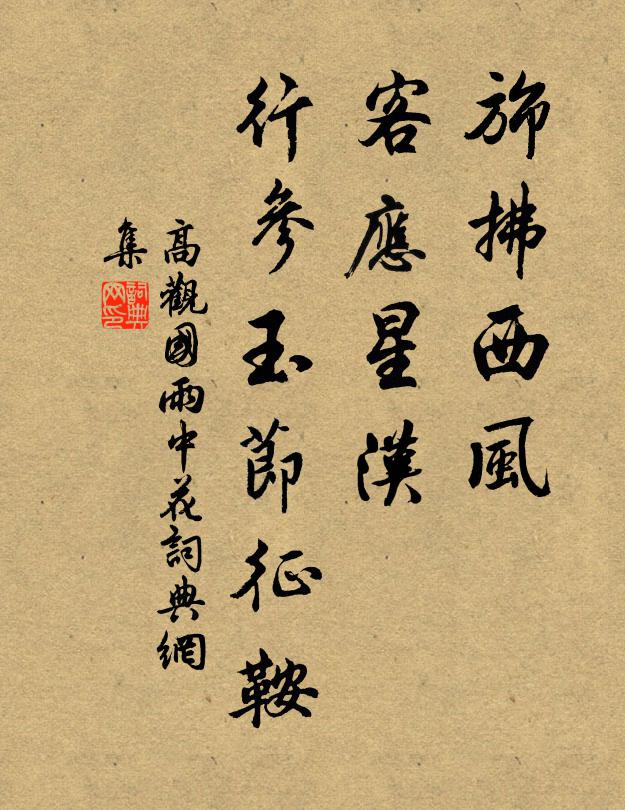 旆拂西風
客應星漢
行參玉節征鞍
高觀國雨中花詞典網
集
詞典
网印